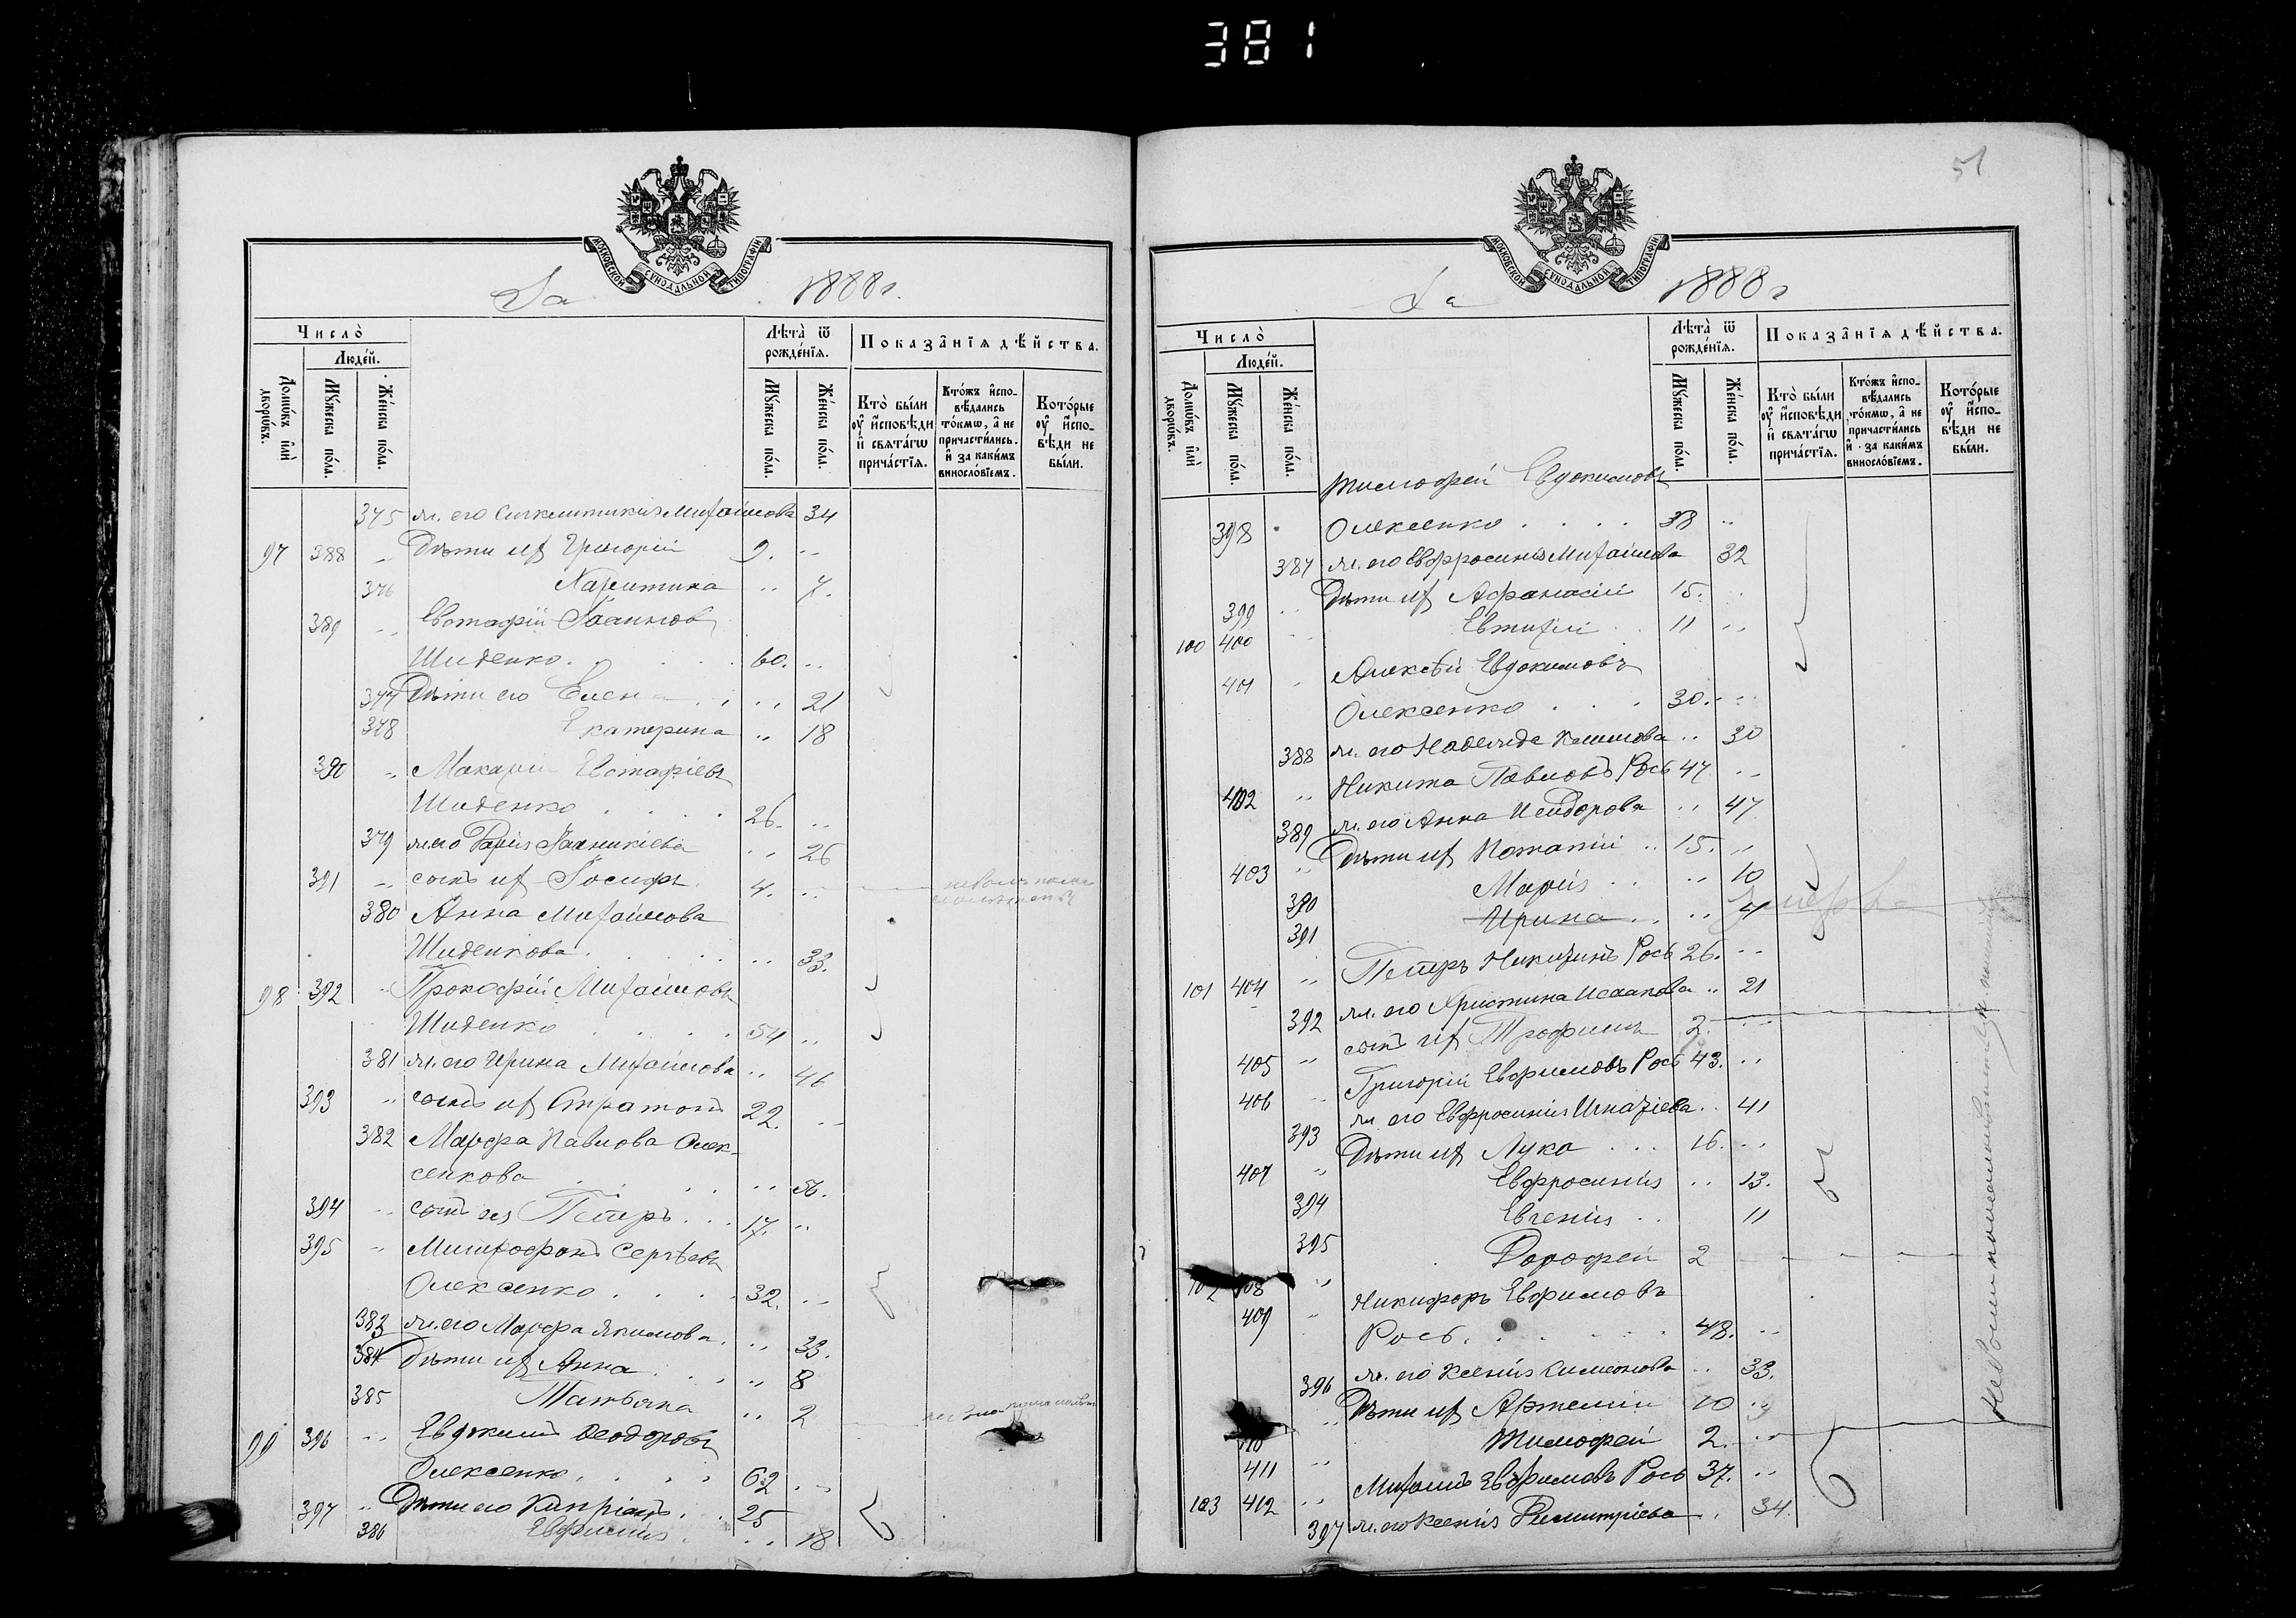 381
МОСКОВСКОЙ СѴНОДАЛЬНОЙ ТИПОГРАФІИ
За 1888 г.
Число̀
Людей.
Лѣта̀ ѿ рожде́нїѧ.
Показа̂нїѧ дѣ́йства.
Домѡ́въ и҆лѝ дворѡ́въ.
Мꙋ́жеска по́ла.
Же́нска по́ла.
Мꙋ́жеска по́ла.
Же́нска по́ла.
Кто̀ бы́ли оу҆ и҆́сповѣди и҆ свѧта́гѡ прича́стїѧ.
Кто́жъ и҆спо-вѣ́дались то́кмѡ, а҆ не причасти́лись. и҆ за каки́мъ винносло́вїемъ.
Кото́рые оу҆ и҆́спо-вѣди не бы́ли.
375 ж. его Синклитикія Михаилова 34
97 388 „ Дѣти их Григорій 9. „
376 Харитина „ 7.
389 „ Евстафій Іоаннов
Шиденко. 60. „
377 Дѣти его Елена „ 21
378 Екатерина „ 18
390 „ Макарій Евстафіевъ
Шиденко 26. „
379 ж. его Дарія Іоанникіева „ 26
391 „ сынъ их Іосифъ 4. „
380 Анна Михаилова
Шиденкова. „ 33.
98 392 „ Прокофій Михаиловъ
Шиденко 54 „
381 ж. его Ирина Михаилова „ 46
393 „ сынъ их Стратонъ 22. „
382 Марфа Павлова Олек-
сенкова „ 56.
394 „ сынъ ея Петръ 17. „
395 „ Митрофанъ Сергѣевъ
Олексенко 32. „
383 ж. его Марфа Якимова „ 33.
384 Дѣти их Анна „ 8
385 Татьяна „ 2
99 396 „ Евдокимъ Ѳеодоровъ
Олексенко 62 „
397 „ Дѣти его Кипріанъ 25
386 Евфимія „ 18
51
МОСКОВСКОЙ СѴНОДАЛЬНОЙ ТИПОГРАФІИ
За 1888 г
Число̀
Людей.
Лѣта̀ ѿ рожде́нїѧ.
Показа̂нїѧ дѣ́йства.
Домѡ́въ и҆лѝ дворѡ́въ.
Мꙋ́жеска по́ла.
Же́нска по́ла.
Мꙋ́жеска по́ла.
Же́нска по́ла.
Кто̀ бы́ли оу҆ и҆́сповѣди и҆ свѧта́гѡ прича́стїѧ.
Кто́жъ и҆спо-вѣ́дались то́кмѡ, а҆ не причасти́лись и҆ за каки́мъ винносло́вїемъ.
Кото́рые оу҆ и҆́спо-вѣди не бы́ли.
Тимофей Евдокимовъ
398 Олексенко 38 „
387 ж. его Евфросинія Михаилова 32
399 „ Дѣти их Афанасій 15.
100 400 „ Евтихій 11 „
401 Алексѣй Евдокимовъ
Олексенко 30. „
388 ж. его Надежда Климова „ 30
402 „ Никита Павловъ Рось 47 „
389 ж. его Анна Исидорова „ 47
403 „ Дѣти их Потапій 15. „
390 Марія „ 10
391 Ирина „ 4
умерла
101 404 „ Петръ Никитинъ Рось 26. „
392 ж. его Христина Исаакова „ 21
405 „ сынъ их Трофимъ 2. „
406 Григорій Евфимовъ Рось 43. „
393 ж. его Евфросинія Игнатіева 41
407 „ Дѣти их Лука 16. „
394 Евфросинія „ 13.
395 Евгенія 11
102 408 „ Дорофей 2
409 „ Никифоръ Евфимовъ
Рось. 48. „
396 ж. его Ксенія Симеонова „ 33.
„ Дѣти их Артемій 10
411 „ Тимофей 2. „
103 412 „ Михаилъ Евфимовъ Рось 37. „
397 ж. его Ксенія Димитріева 34.